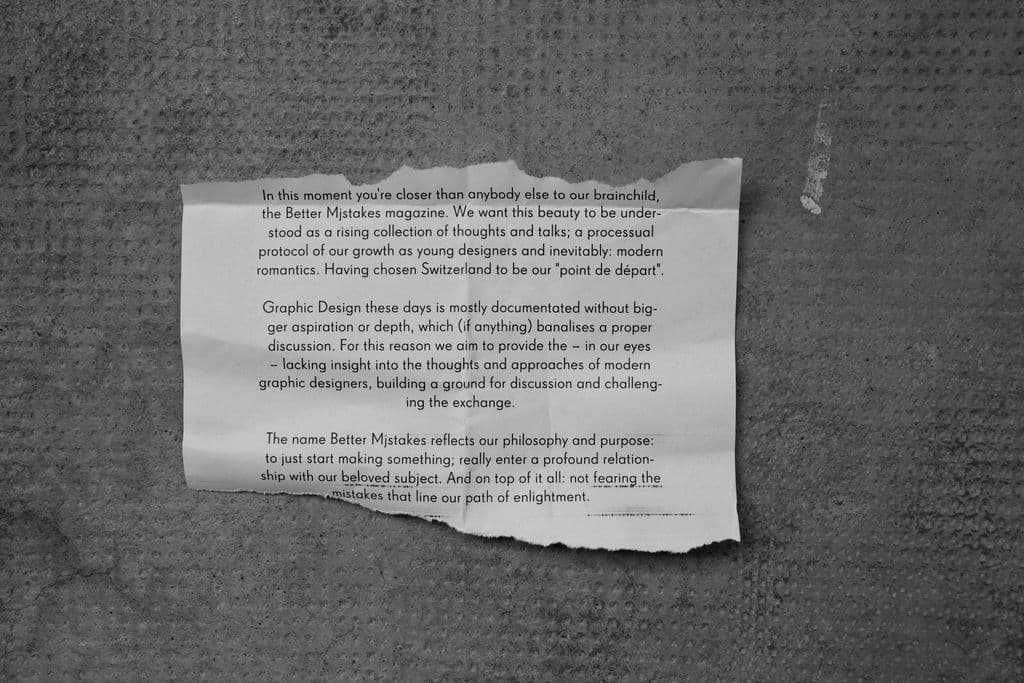 In this moment you're closer than anybody else to our brainchild,
the Better Mjstakes magazine. We want this beauty to be under-
stood as a rising collection of thoughts and talks; a processual
protocol of our growth as young designers and inevitably: modern
romantics. Having chosen Switzerland to be our "point de départ".
Graphic Design these days is mostly documentated without big-
ger aspiration or depth, which (if anything) banalises a proper
discussion. For this reason we aim to provide the – in our eyes
– lacking insight into the thoughts and approaches of modern
graphic designers, building a ground for discussion and challeng-
ing the exchange.
The name Better Mjstakes reflects our philosophy and purpose:
to just start making something; really enter a profound relation-
ship with our beloved subject. And on top of it all: not fearing the
mistakes that line our path of enlightment.